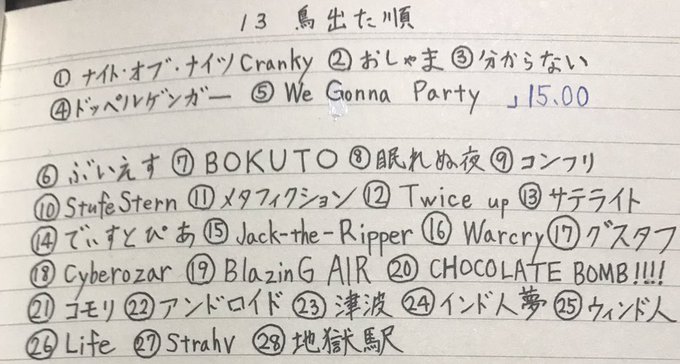 13 鳥出た順
① ナイト・オブ・ナイツ Cranky ② おしゃま ③ 分からない
④ ドッペルゲンガー ⑤ We Gonna Party 」15.00
⑥ ぶいえす ⑦ BOKUTO ⑧ 眠れぬ夜 ⑨ コンフリ
⑩ Stufe Stern ⑪ メタフィクション ⑫ Twice up ⑬ サテライト
⑭ でぃすとぴあ ⑮ Jack-the-Ripper ⑯ Warcry ⑰ グスタフ
⑱ Cyberozar ⑲ BlazinG AIR ⑳ CHOCOLATE BOMB!!!!
㉑ コモリ ㉒ アンドロイド ㉓ 津波 ㉔ インド人夢 ㉕ ウィンド人
㉖ Life ㉗ Strahv ㉘ 地獄駅